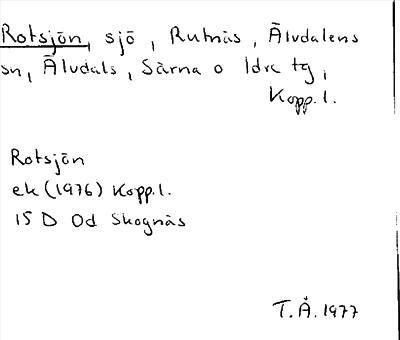 Rotsjön, sjö, Rutnäs, Älvdalens
sn, Älvdals, Särna o Idre tg,
Kopp.l.
Rotsjön
ek (1976) Kopp.l.
15 D 0d Skognäs
T.Å. 1977